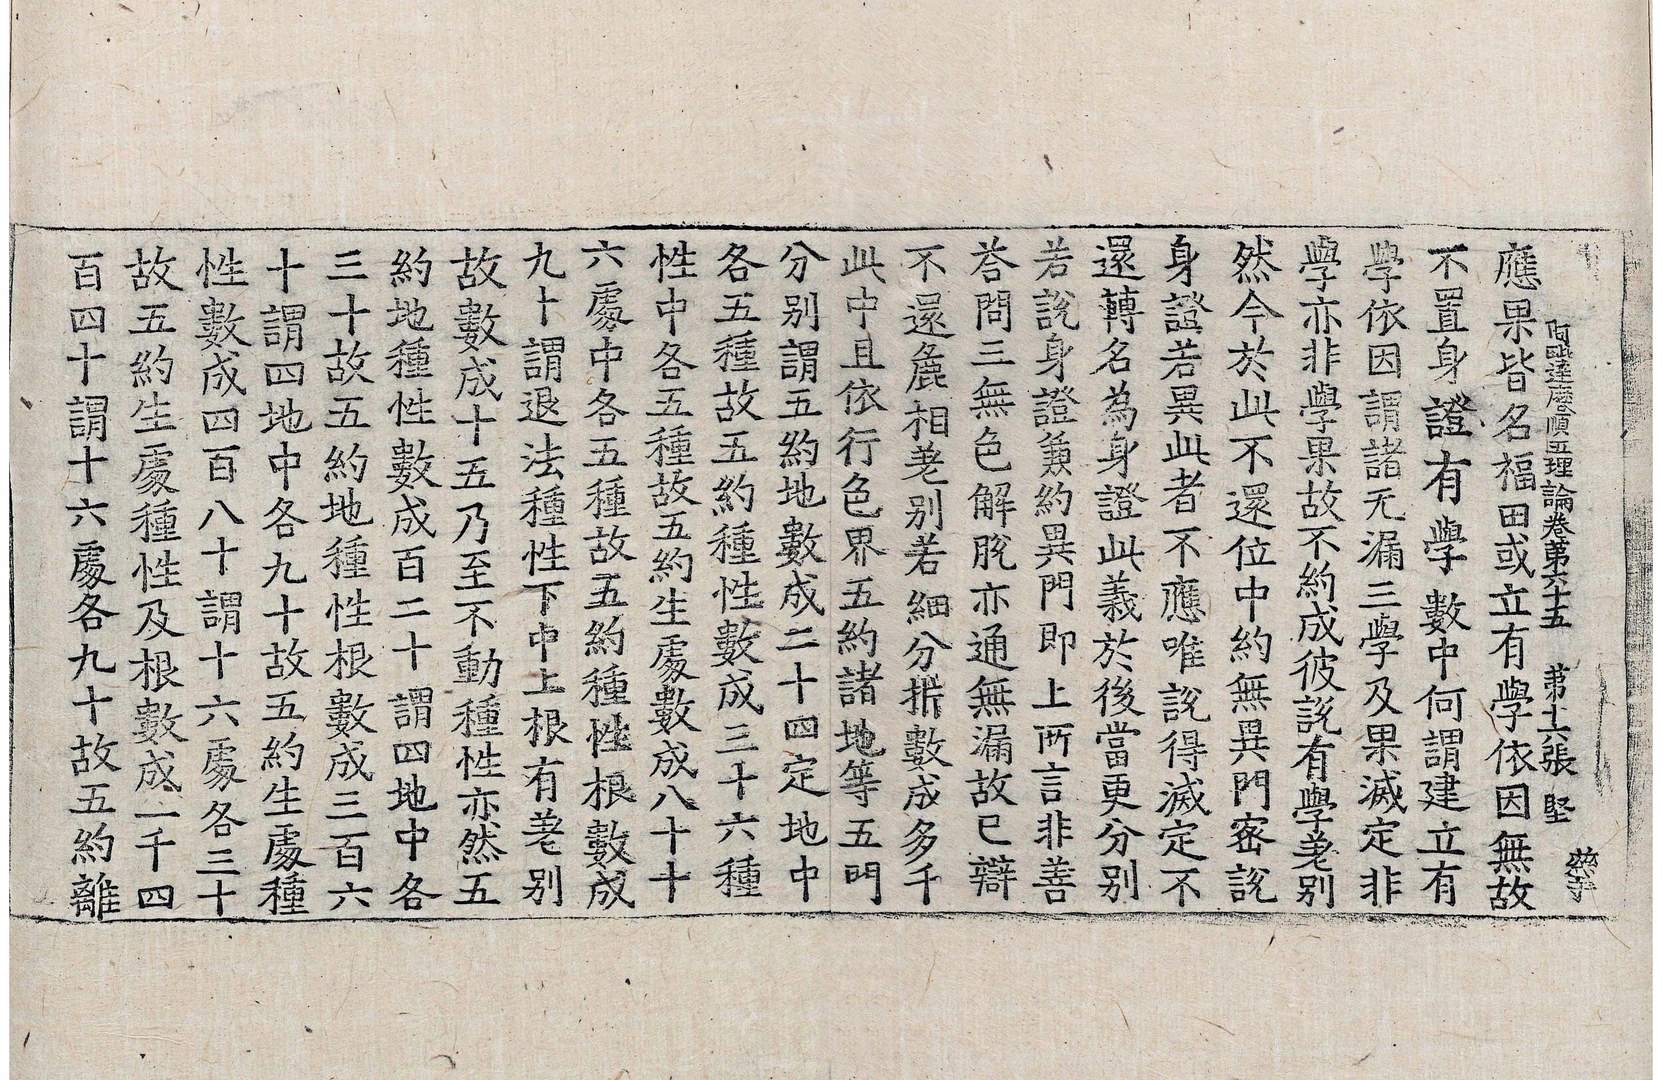 阿毗達磨順正理論卷第六十五 第十六張 堅
應果皆名福田或立有學依因無故
不置身證有學數中何謂建立有
學依因謂諸无漏三學及果滅定非
學亦非學果故不約成彼說有學差别
然今於此不還位中約無異門密說
身證若異此者不應唯說得滅定不
還轉名為身證此義於後當更分别
若說身證兼約異門即上所言非善
荅問三無色解脫亦通無漏故已辯
不還麁相差别若細分析數成多千
此中且依行色界五約諸地等五門
分别謂五約地數成二十四定地中
各五種故五約種性數成三十六種
性中各五種故五約生處數成八十十
六處中各五種故五約種性根數成
九十謂退法種性下中上根有差别
故數成十五乃至不動種性亦然五
約地種性數成百二十謂四地中各
三十故五約地種性根數成三百六
十謂四地中各九十故五約生處種
性數成四百八十謂十六處各三十
故五約生處種性及根數成一千四
百四十謂十六處各九十故五約離